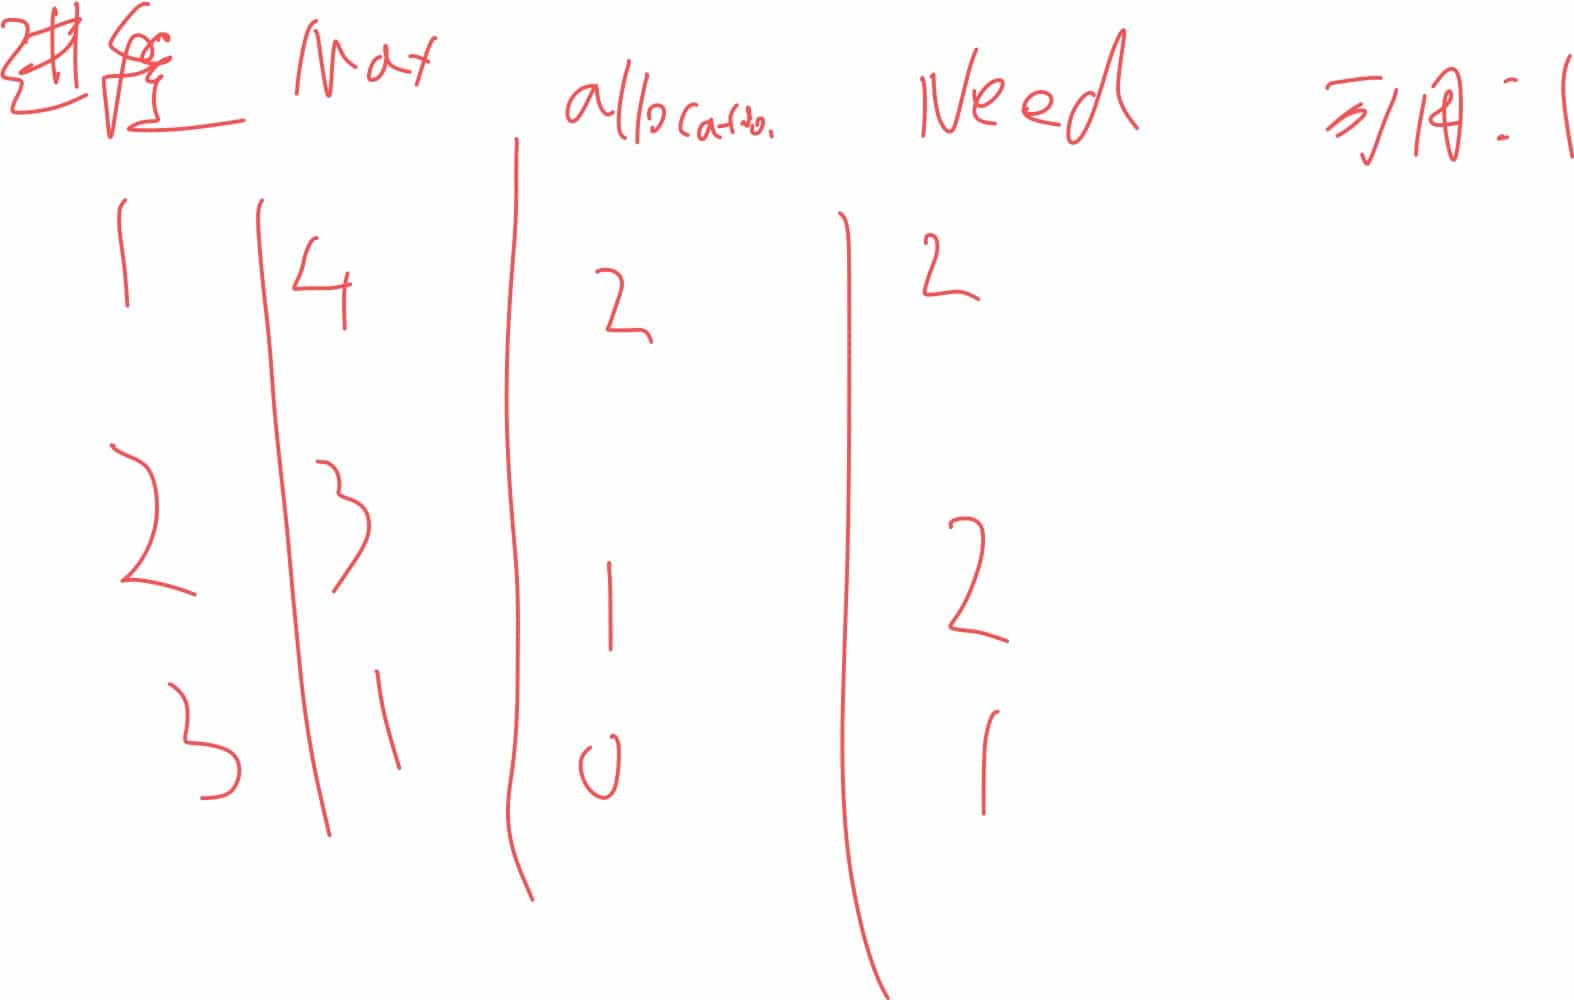 进程 Max allocation Need 可用：1
1 4 2 2
2 3 1 2
3 1 0 1